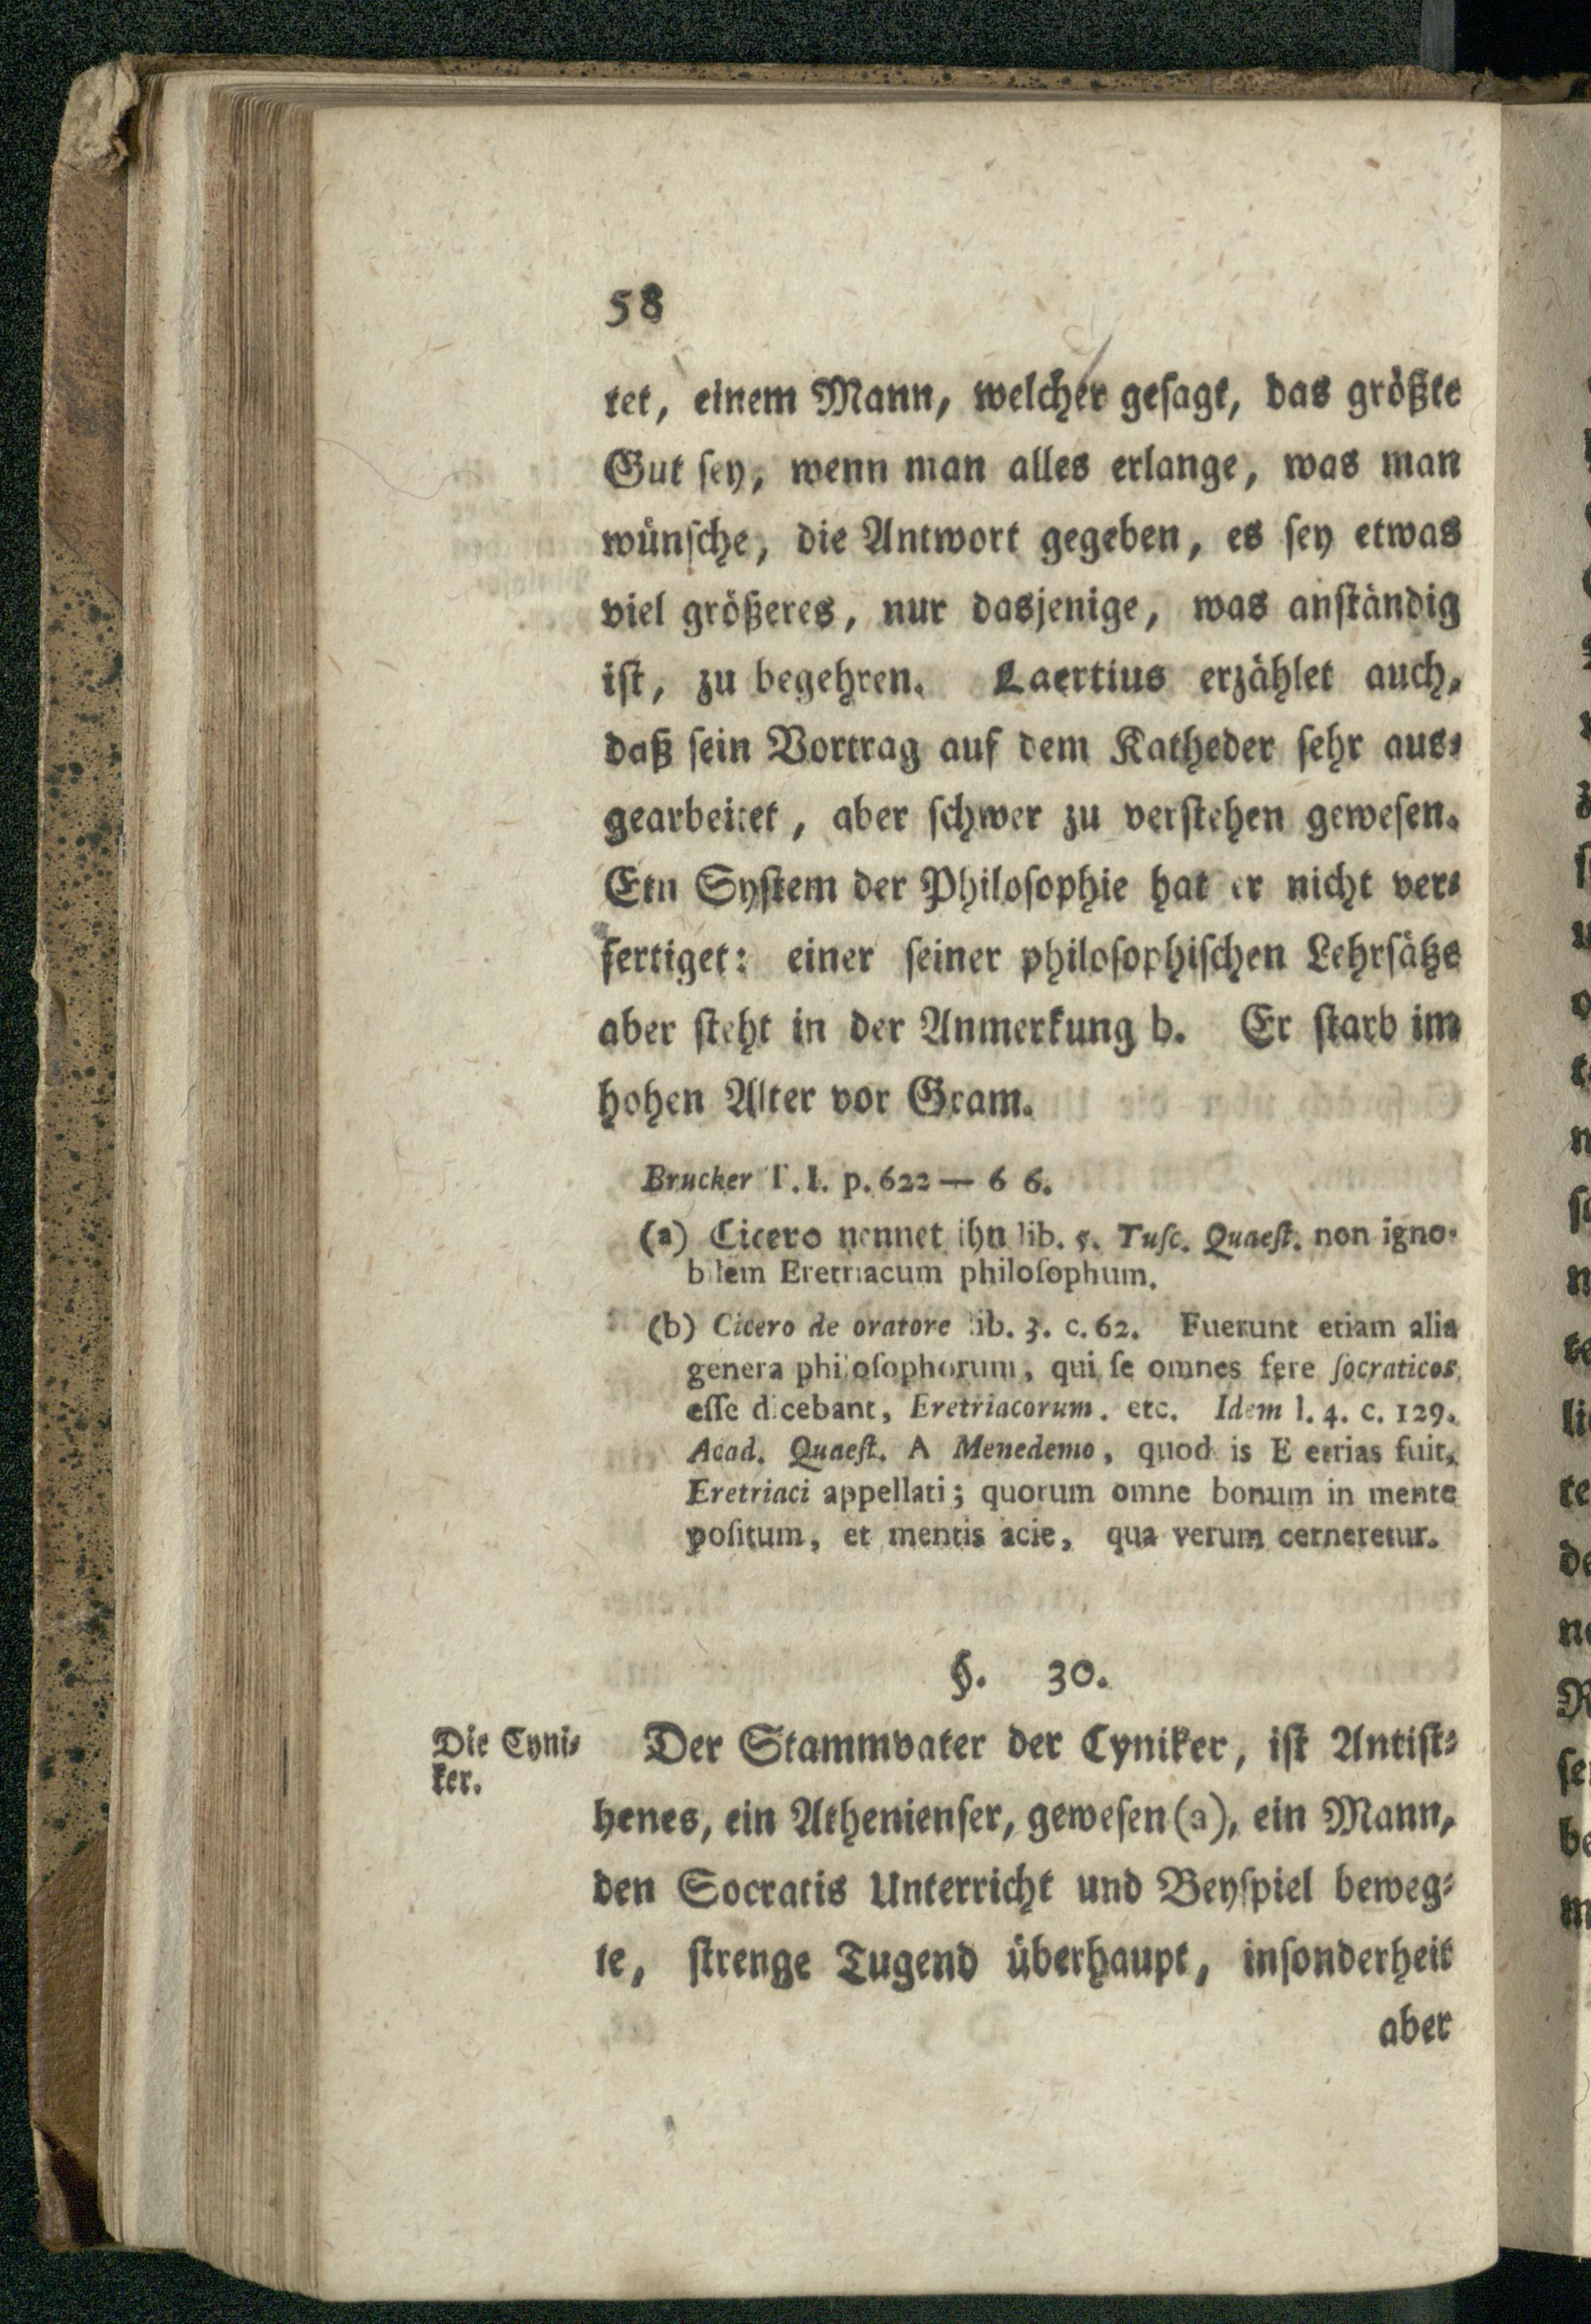 58
tet, einem Mann, welcher geſagt, das größte
Gut ſey, wenn man alles erlange, was man
wünſche, die Antwort gegeben, es ſey etwas
viel größeres, nur dasjenige, was anſtändig
iſt, zu begehren. Laertius erzählet auch,
daß ſein Vortrag auf dem Katheder ſehr aus⸗
gearbeitet, aber ſchwer zu verſtehen geweſen.
Ein Syſtem der Philoſophie hat er nicht ver⸗
fertiget: einer ſeiner philoſophiſchen Lehrſätze
aber ſteht in der Anmerkung b. Er ſtarb im
hohen Alter vor Gram.
Brucker T. I. p. 622 — 6 6.
(a) Cicero nennet ihn lib. 5. Tuſc. Quaeſt. non igno-
bilem Eretriacum philoſophum.
(b) Cicero de oratore lib. 3. c. 62. Fuerunt etiam alia
genera philoſophorum, qui ſe omnes fere ſocraticos
eſſe dicebant, Eretriacorum. etc. Idem l. 4. c. 129.
Acad. Quaeſt. A Menedemo, quod is E etrias fuit,
Eretriaci appellati; quorum omne bonum in mente
poſitum, et mentis acie, qua verum cerneretur.
§. 30.
Die Cyni⸗
ker.
Der Stammvater der Cyniker, iſt Antiſt⸗
henes, ein Athenienſer, geweſen (a), ein Mann,
den Socratis Unterricht und Beyſpiel beweg⸗
te, ſtrenge Tugend überhaupt, inſonderheit
aber